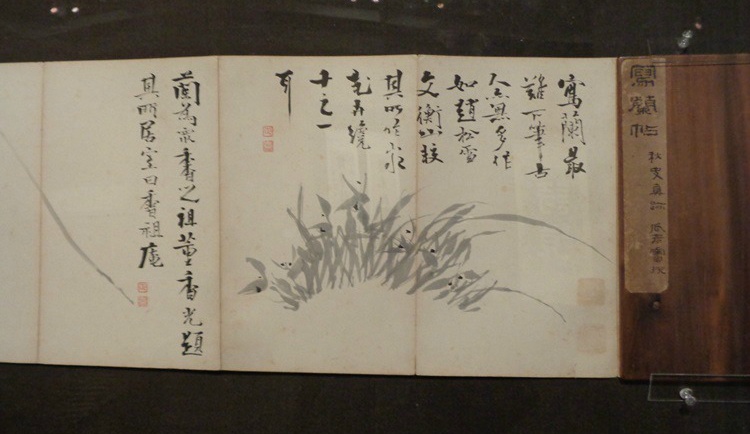 寫蘭帖
寫蘭最
難下筆古
人亦無多作
如趙松雪
文衡山較
其所作山水
花卉纔
十之一
耳
蘭為眾香之祖董香光題
其所居室曰香祖庵